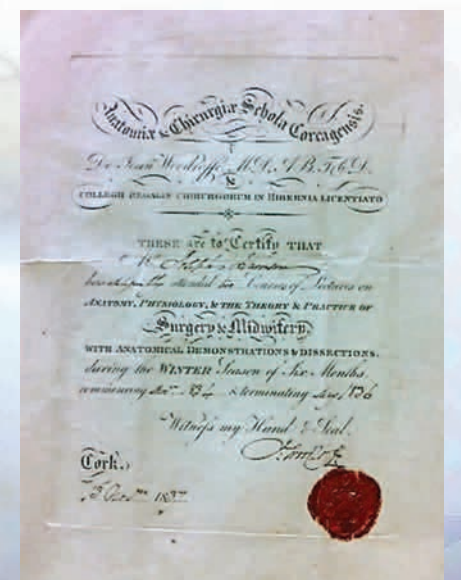 Anatomiæ & Chirurgiæ Schola Corcagensis.
Dre. Ioan Woodroffe, M.D. A.B.
&
COLLEGII REGALIS CHIRURGORUM IN HIBERNIA LICENTIATO
THESE are to Certify THAT
Mr
has attended two Courses of Lectures on
ANATOMY, PHYSIOLOGY, & THE THEORY & PRACTICE OF
Surgery & Midwifery,
WITH ANATOMICAL DEMONSTRATIONS & DISSECTIONS.
during the WINTER Season of Six Months,
commencing & terminating
Witness my Hand & Seal.
Cork,